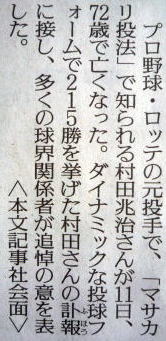 プロ野球・ロッテの元投手で、「マサカ
リ投法」で知られる村田兆治さんが11日、
72歳で亡くなった。ダイナミックな投球フ
ォームで215勝を挙げた村田さんの訃報
ふほう
に接し、多くの球界関係者が追悼の意を表
した。
〈本文記事社会面〉